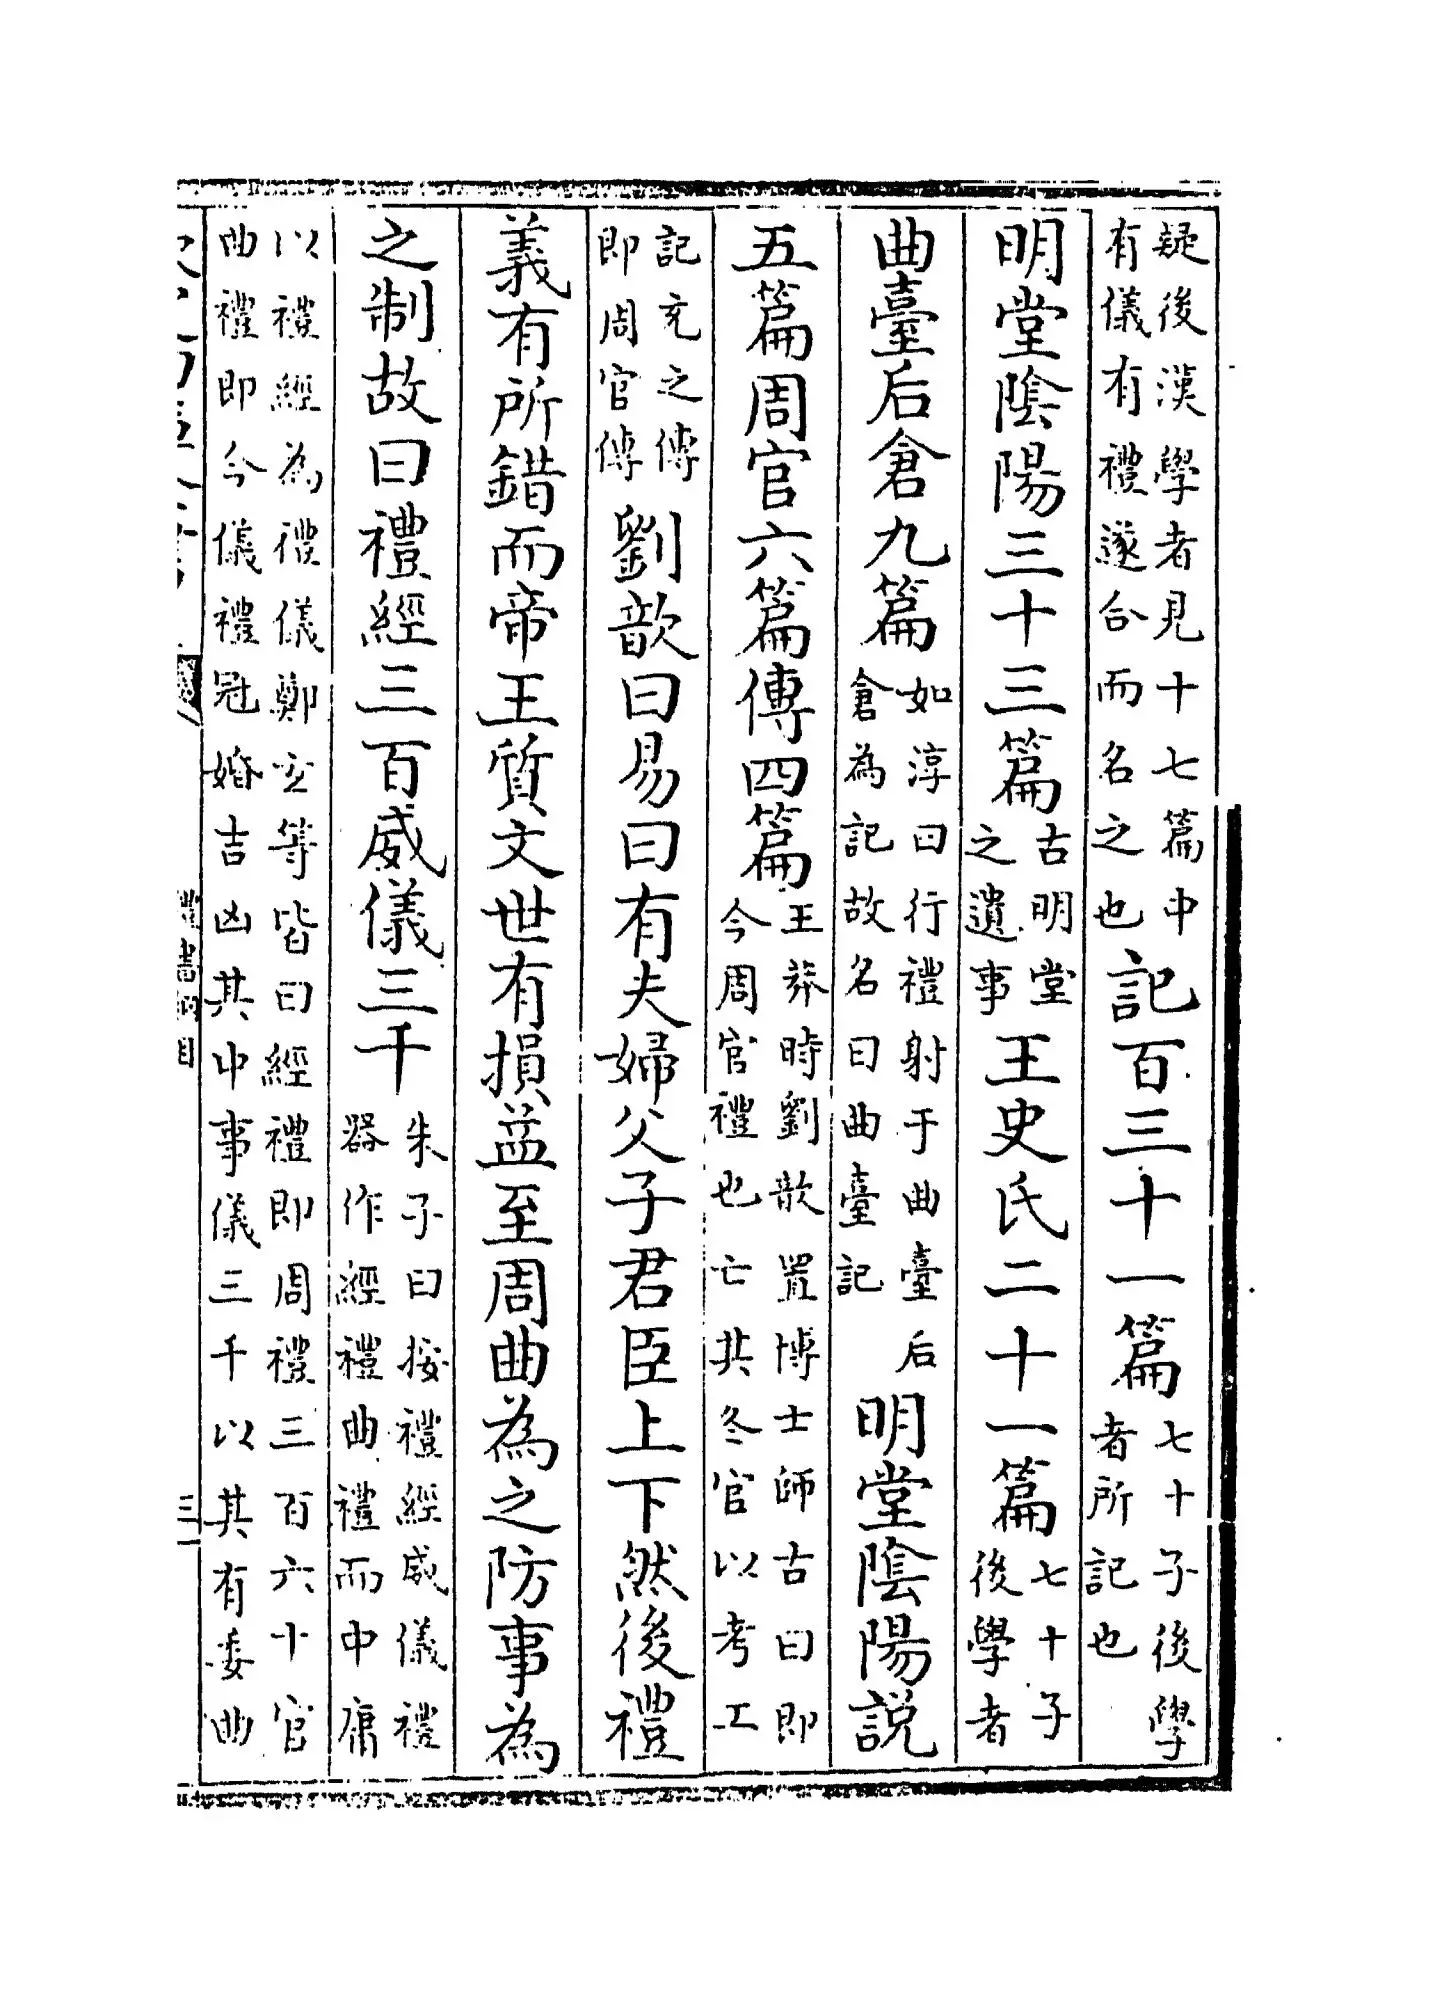 疑後漢學者見十七篇中
有儀有禮遂合而名之也
記百三十一篇
七十子後學
者所記也
明堂陰陽三十三篇
古明堂
之遺事
王史氏二十一篇
七十子
後學者
曲臺后倉九篇
如淳曰行禮射于曲臺后
倉為記故名曰曲臺記
明堂陰陽說
五篇周官六篇傳四篇
王莽時劉歆置博士師古曰即
今周官禮也亡其冬官以考工
記充之傳
即周官傳
劉歆曰易曰有夫婦父子君臣上下然後禮
義有所錯而帝王質文世有損益至周曲為之防事為
之制故曰禮經三百威儀三千
朱子曰按禮經威儀禮
器作經禮曲禮而中庸
以禮經為禮儀鄭玄等皆曰經禮即周禮三百六十官
曲禮即今儀禮冠婚吉凶其中事儀三千以其有委曲
禮書綱目
三